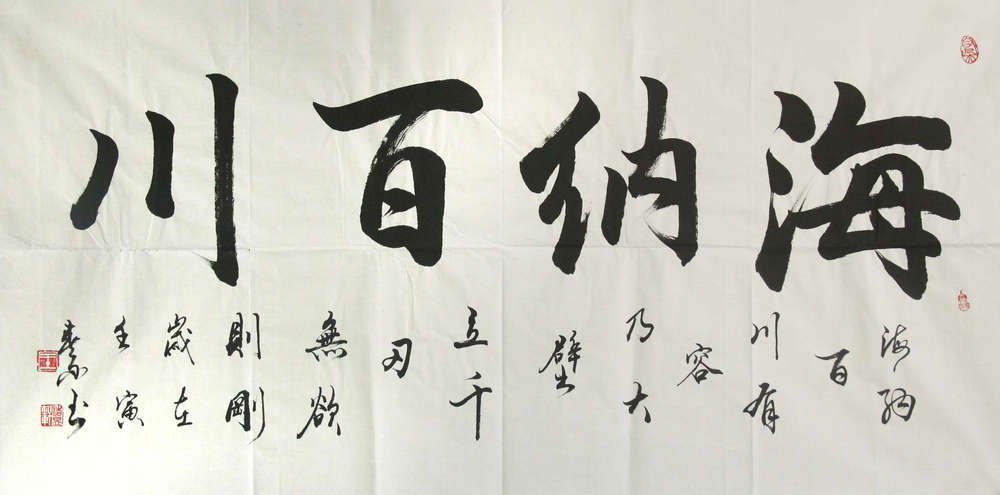 海納百川
海納
百
川有
容
乃大
壁
立千
刃
無欲
則剛
歲在
壬寅
书